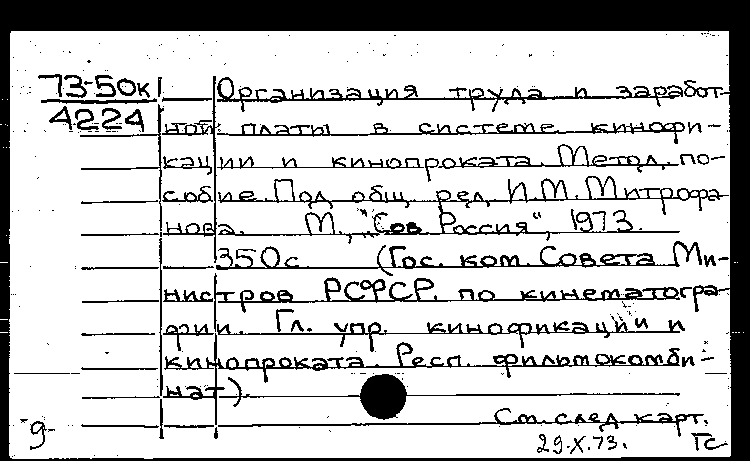 73-50к
4224
Организация труда и заработ-
ной платы в системе кинофи-
кации и кинопроката. Метод. по-
собие. Под общ. ред. И.М. Митрофа
нова. М., "Сов. Россия", 1973.
350с. (Гос. ком. Совета Ми-
нистров РСФСР. по кинематогра-
фии. Гл. упр. кинофикации и
кинопроката. Респ. фильмокомби-
нат).
См. след. карт.
9-
29.X.73. Гс